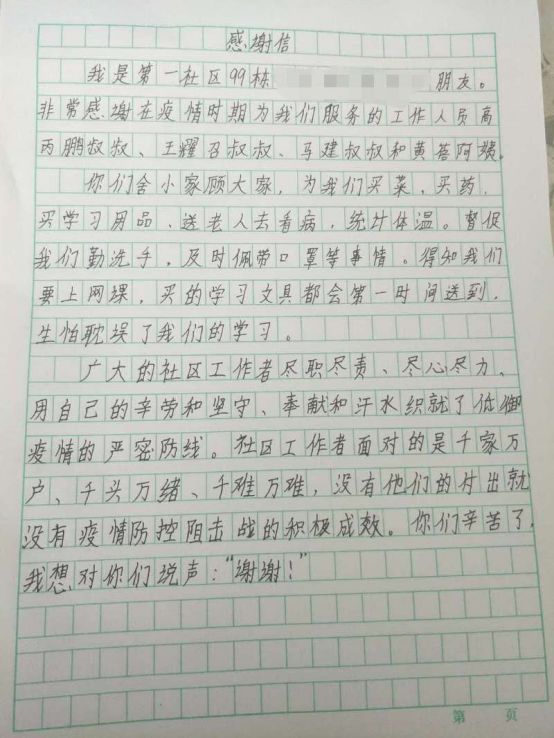 感谢信
我是第一社区99栋 朋友。
非常感谢在疫情时期为我们服务的工作人员高
丙鹏叔叔、王耀召叔叔、马建叔叔和黄荟阿姨。
你们舍小家顾大家，为我们买菜，买药，
买学习用品，送老人去看病，统计体温。督促
我们勤洗手，及时佩带口罩等事情。得知我们
要上网课，买的学习文具都会第一时间送到，
生怕耽误了我们的学习。
广大的社区工作者尽职尽责、尽心尽力、
用自己的辛劳和坚守、奉献和汗水织就了抵御
疫情的严密防线。社区工作者面对的是千家万
户、千头万绪、千难万难，没有他们的付出就
没有疫情防控阻击战的积极成效。你们辛苦了，
我想对你们说声：“谢谢！”
第 页